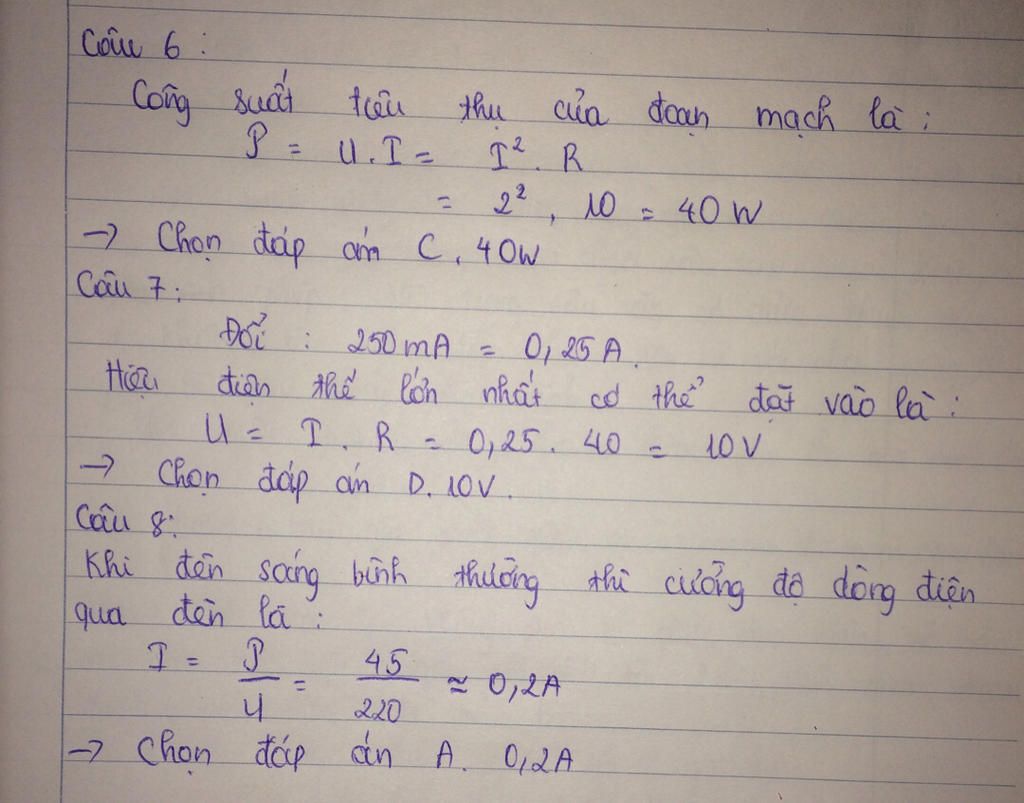 Câu 6 :
Công suất tiêu thụ của đoạn mạch là :
P = U.I = I². R
= 2² . 10 = 40 W
→ Chọn đáp án C. 40W
Câu 7 :
Đổi : 250 mA = 0,25 A.
Hiệu điện thế lớn nhất có thể đặt vào là :
U = I . R = 0,25 . 40 = 10 V
→ Chọn đáp án D. 10V.
Câu 8 :
Khi đèn sáng bình thường thì cường độ dòng điện
qua đèn là :
I = P/U = 45/220 ≈ 0,2A
→ Chọn đáp án A. 0,2A